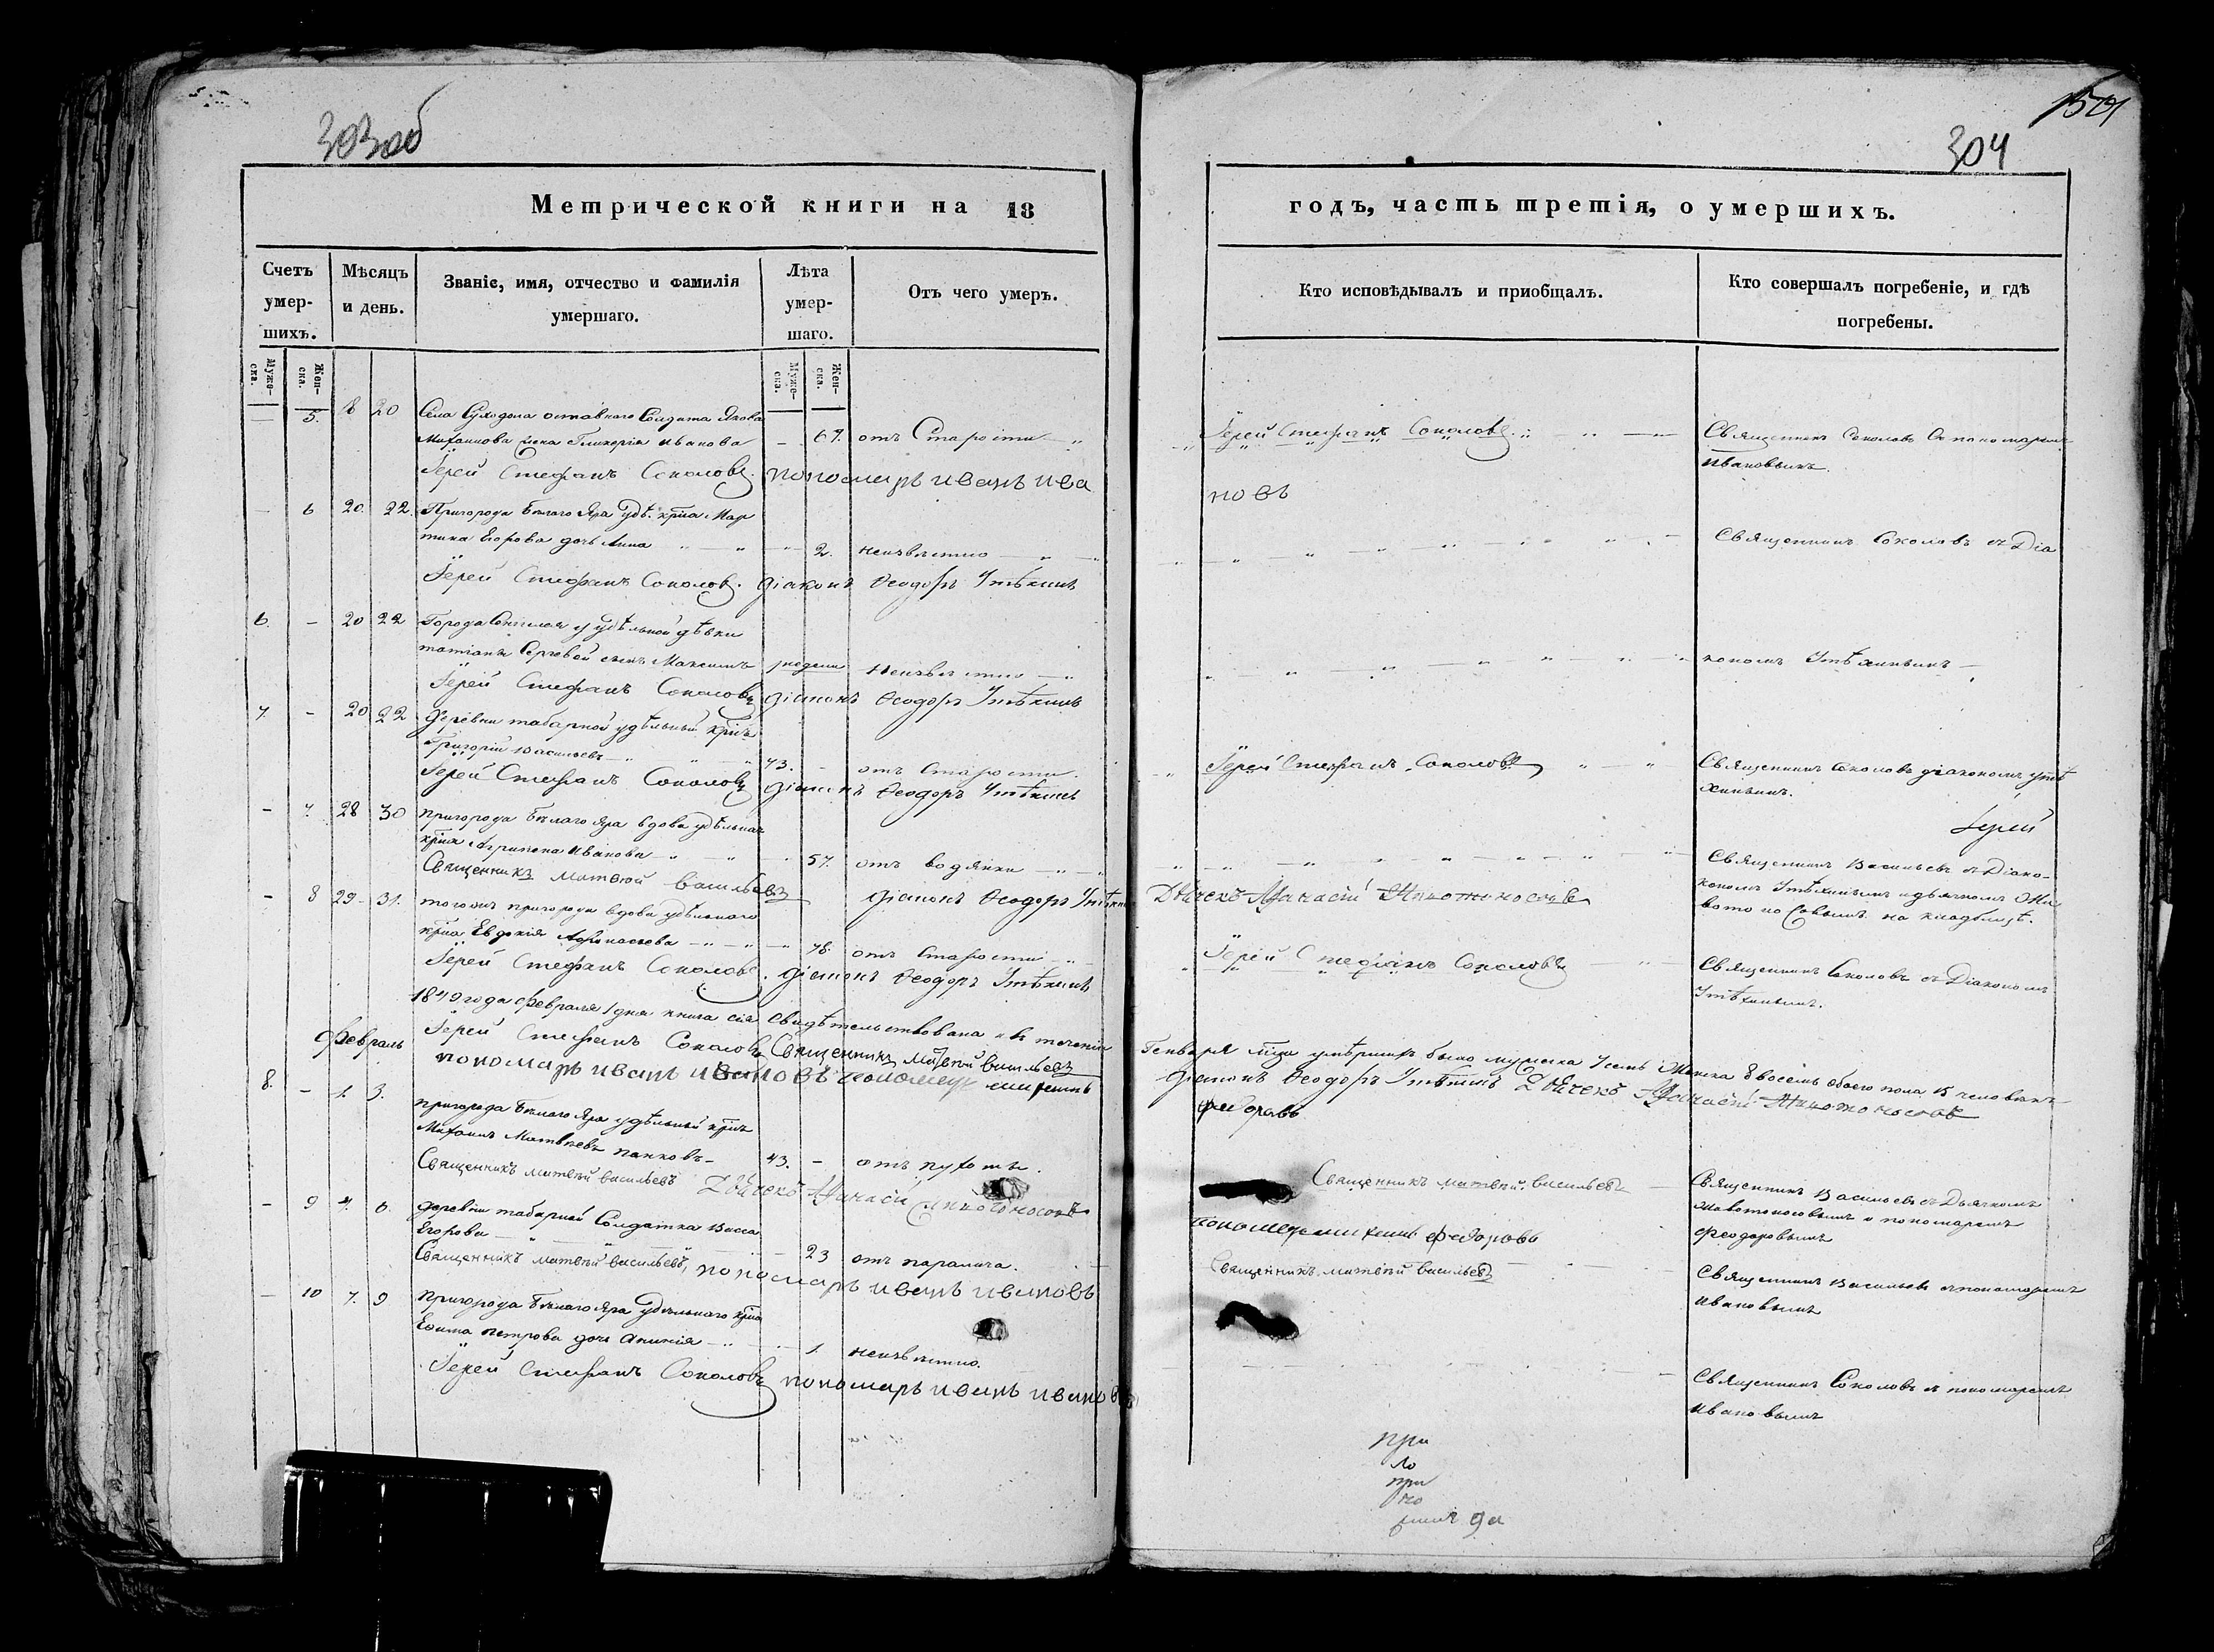 303 об
304
Метрической книги на 18
годъ, часть третія, о умершихъ.
Счетъ умер-
шихъ.
Мѣсяцъ
и день.
Званіе, имя, отчество и фамилія
умершаго.
Лѣта
умер-
шаго.
Отъ чего умеръ.
Кто исповѣдывалъ и пріобщалъ.
Кто совершалъ погребеніе, и гдѣ
погребены.
Муже-
ска.
Жен-
ска.
Муже-
ска.
Жен-
ска.
5. 18 20 Села Суходола отставнаго Солдата Якова
Михайлова жена Гликерія иванова 67. отъ Старости Іерей Стефанъ Соколовъ Священникъ Соколовъ съ пономаремъ
Ивановымъ.
Іерей Стефанъ Соколовъ. пономарь иванъ ива
новъ
6 20. 22. Пригорода Бѣлаго Яра удѣ. крѣна Мар
тина Егорова дочь Анна 2. неизвѣстно Священникъ Соколовъ съ Діа
Іерей Стефанъ Соколовъ. діаконъ Ѳеодоръ Утѣхинъ
6. 20 22 Города удѣльной дѣвки
татіаны Сергѣевой сынъ Максимъ недели неизвѣстно кономъ Утѣхинымъ
Іерей Стефанъ Соколовъ діаконъ Ѳеодоръ Утѣхинъ
7. 20 22 Деревни табарной удѣльный крѣнъ
Григорій васильевъ 73. отъ Старости. Іерей Стефанъ Соколовъ Священникъ Соколовъ діакономъ утѣ
хинымъ.
Іерей Стефанъ Соколовъ діаконъ Ѳеодоръ Утѣхинъ
Іерей
7. 28 30 пригорода Бѣлаго Яра вдова удѣльная
крѣнка Агрипена Иванова 57. отъ водянки Священникъ Васильевъ съ Діако-
кономъ Утѣхинымъ и дьячкомъ Жи
вотоносовымъ на кладбищѣ.
Священникъ матвѣй васильевъ діаконъ Ѳеодоръ Утѣхинъ Дьячекъ Афанасій Животоносовъ
8 29 31. тогожъ пригорода вдова удѣльнаго
крѣна Евдокія Афонасьева 78. отъ Старости Іерей Стефанъ Соколовъ Священникъ Соколовъ съ Діакономъ
Утѣхинымъ.
Іерей Стефанъ Соколовъ. діаконъ Ѳеодоръ Утѣхинъ
1849 года февраля 1 дня книга сія свидѣтельствована въ теченіи Генваря м͠ца умершихъ было мужска 7 семь Женска 8 восемь обоего пола 15 человѣкъ
Іерей Стефанъ Соколовъ Священникъ матвѣй васильевъ діаконъ Ѳеодоръ Утѣхинъ Дьячекъ Афанасій Животоносовъ
Февраль
пономарь иванъ ивановъ пономарь федоровъ
8. 1. 3. пригорода Бѣлаго Яра удѣльный крѣнъ
Михаилъ Матвѣевъ панковъ 43. отъ Священникъ матвѣй васильевъ Священникъ Васильевъ съ Дьячкомъ
Животоносовымъ и пономаремъ
Феодоровымъ
Священникъ матвѣй васильевъ Дьячекъ Афанасій Животоносовъ пономарь федоровъ
9 4. 6. деревни табарной Солдатка Васса
Егорова 23 отъ паралича. Священникъ матвѣй васильевъ Священникъ Васильевъ съ пономаремъ
Ивановымъ
Священникъ матвѣй васильевъ, пономарь иванъ ивановъ
10 7. 9 пригорода Бѣлаго Яра Удѣльнаго крѣна
Екима петрова дочь 1. неизвѣстно. Священникъ Соколовъ съ пономаремъ
Ивановымъ
Іерей Стефанъ Соколовъ пономарь иванъ ивановъ
при
ло
при
но